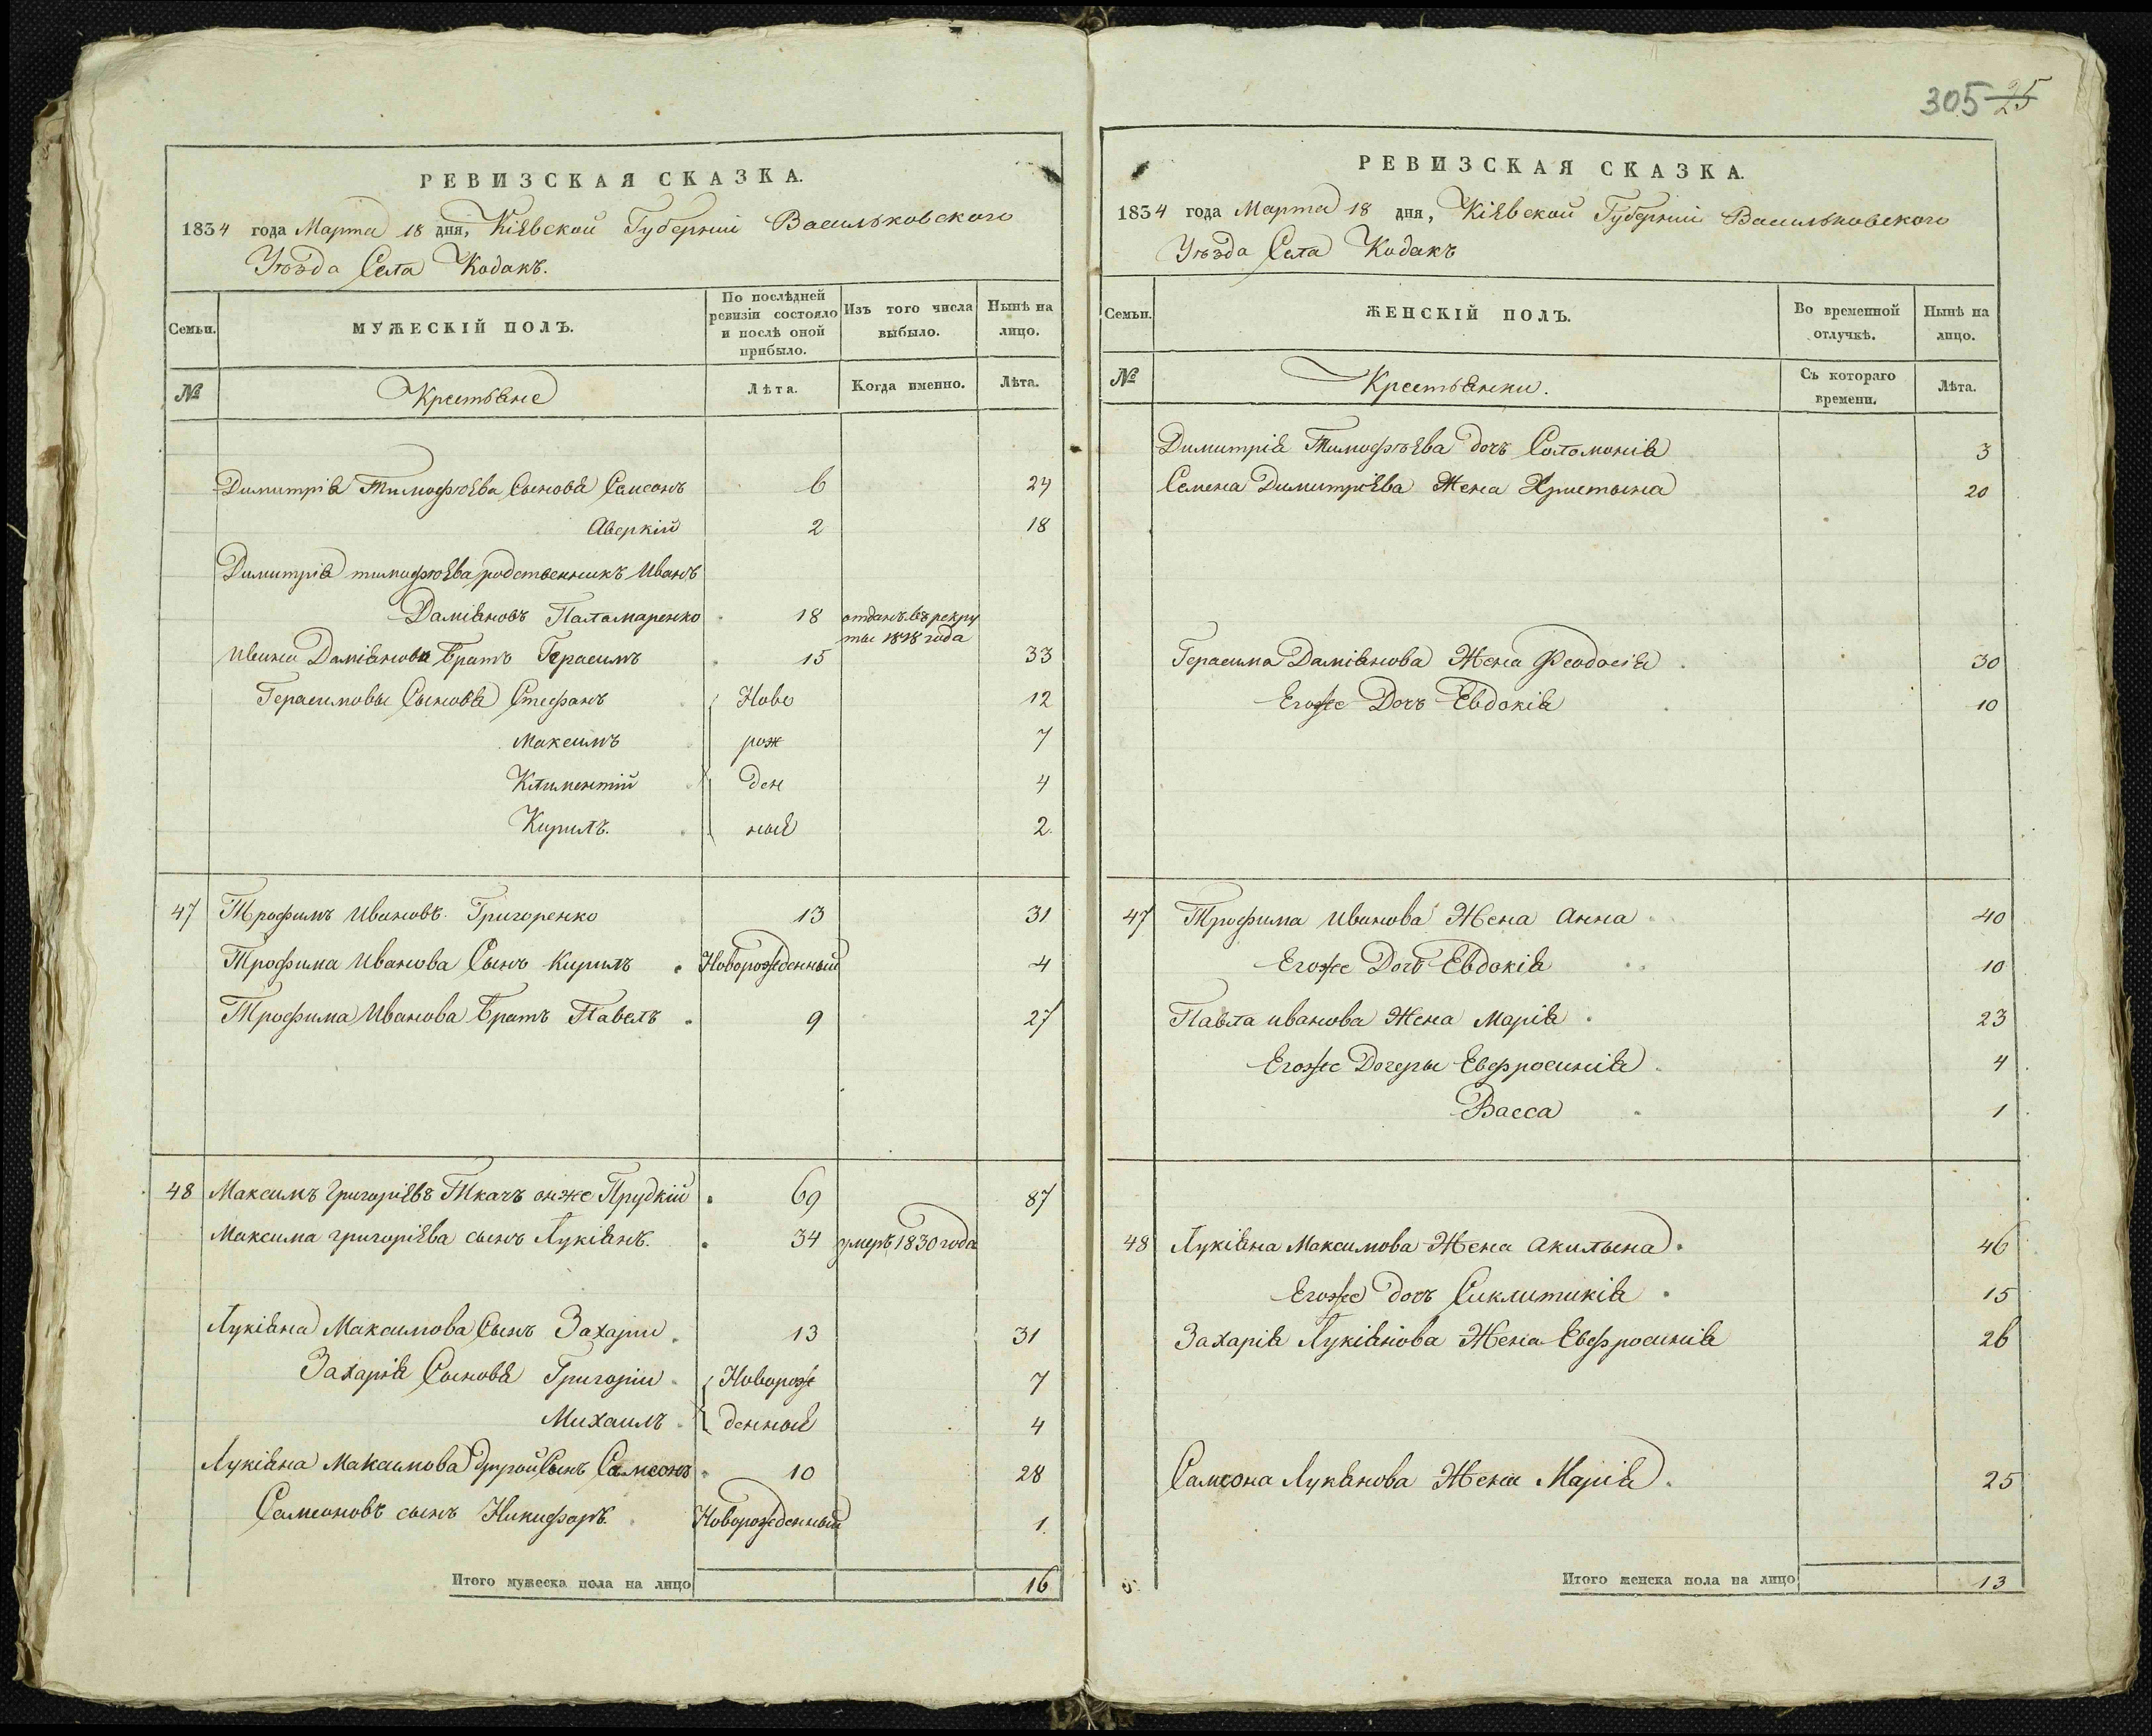 305 25
РЕВИЗСКАЯ СКАЗКА.
1834 года Марта 18 дня, Кіевской Губерніи Васильковскаго
Уѣзда Села Кодакъ.
Семьи.
МУЖЕСКІЙ ПОЛЪ.
По послѣдней ревизіи состояло и послѣ оной прибыло.
Изъ того числа выбыло.
Нынѣ на лицо.
№
Крестьяне
Лѣта.
Когда именно.
Лѣта.
Димитрія Тимофѣева Сыновья Самсонъ 6 24
Аверкій 2 18
Димитрія тимофѣева родственникъ Иванъ
Даміановъ Паламаренко 18 отданъ въ рекру
ты 1828 года
Ивана Даміанова братъ Герасимъ 15 33
Герасимовы Сыновья Стефанъ Ново 12
Максимъ рож 7
Климентій ден 4
Кирилъ. ныя 2.
47 Трофимъ Ивановъ Григоренко 13 31
Трофима Иванова Сынъ Кирилъ Новорожденный 4
Трофима Иванова братъ Павелъ 9 27
48 Максимъ Григоріевъ Ткачъ онже Прудкій 69 87
Максима григоріева сынъ Лукіянъ. 34 умеръ 1830 года
Лукіяна Максимова Сынъ Захарій 13 31
Захарія Сыновья Григорій Новорож 7
Михаилъ денныя 4
Лукіяна Максимова другой Сынъ Самсонъ 10 28
Самсоновъ сынъ Никифоръ. Новорожденный 1.
Итого мужеска пола на лицо 16
РЕВИЗСКАЯ СКАЗКА.
1834 года Марта 18 дня, Кіевской Губерніи Васильковскаго
Уѣзда Села Кодакъ
Семьи.
ЖЕНСКІЙ ПОЛЪ.
Во временной отлучкѣ.
Нынѣ на лицо.
№
Крестьянки.
Съ котораго времени.
Лѣта.
Димитрія Тимофѣева дочь Саломонія 3
Семена Димитріева Жена Христына 20
Герасима Даміанова Жена Феодосія 30
Егоже Дочь Евдокія 10
47 Трофима Иванова Жена Анна 40
Егоже Дочь Евдокія 10
Павла иванова Жена Марія 23
Егоже Дочеры Евфросинія 4
Васса 1
48 Лукіяна Максимова Жена Акилына 46
Егоже дочь Сиклитикія 15
Захарія Лукіянова Жена Евфросинія 26
Самсона Лукянова Жена Марія 25
Итого женска пола на лицо 13